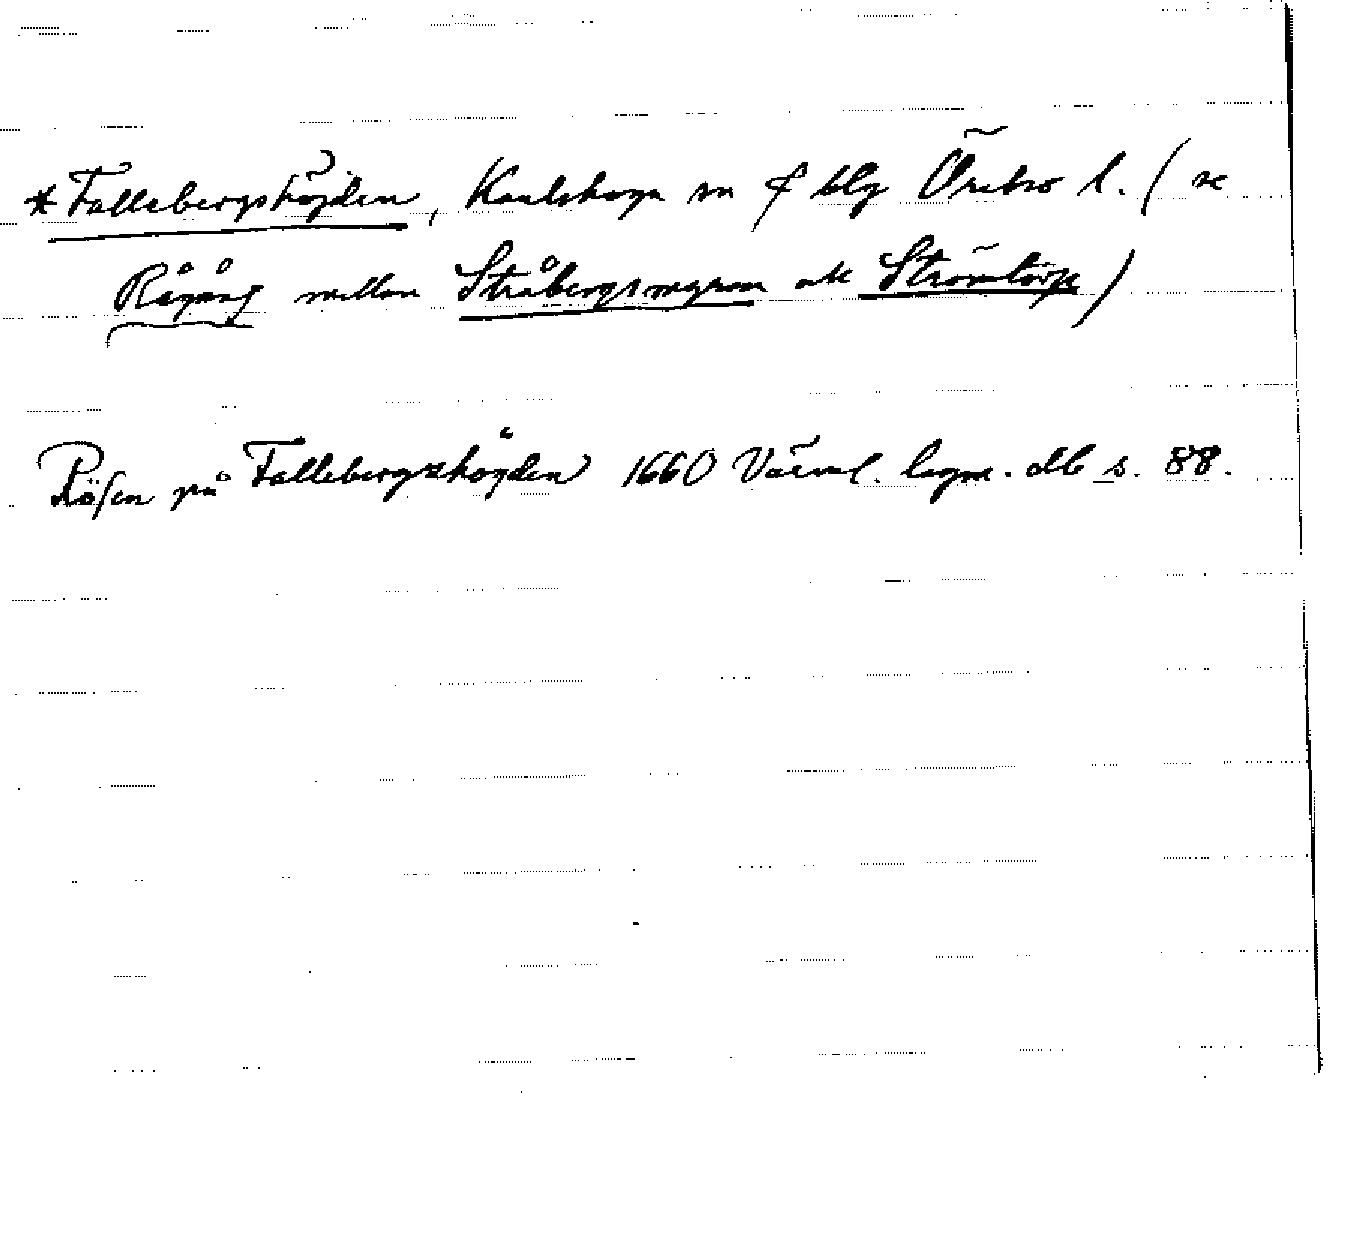 *Fallebergshöjden, Karlskoga sn & blg Örebro l. (se
Rågång mellan Stråbergsmyran och Strömtorp)
Rösen på Fallebergzhöyden 1660 Värml. lagm. dlb s. 88.